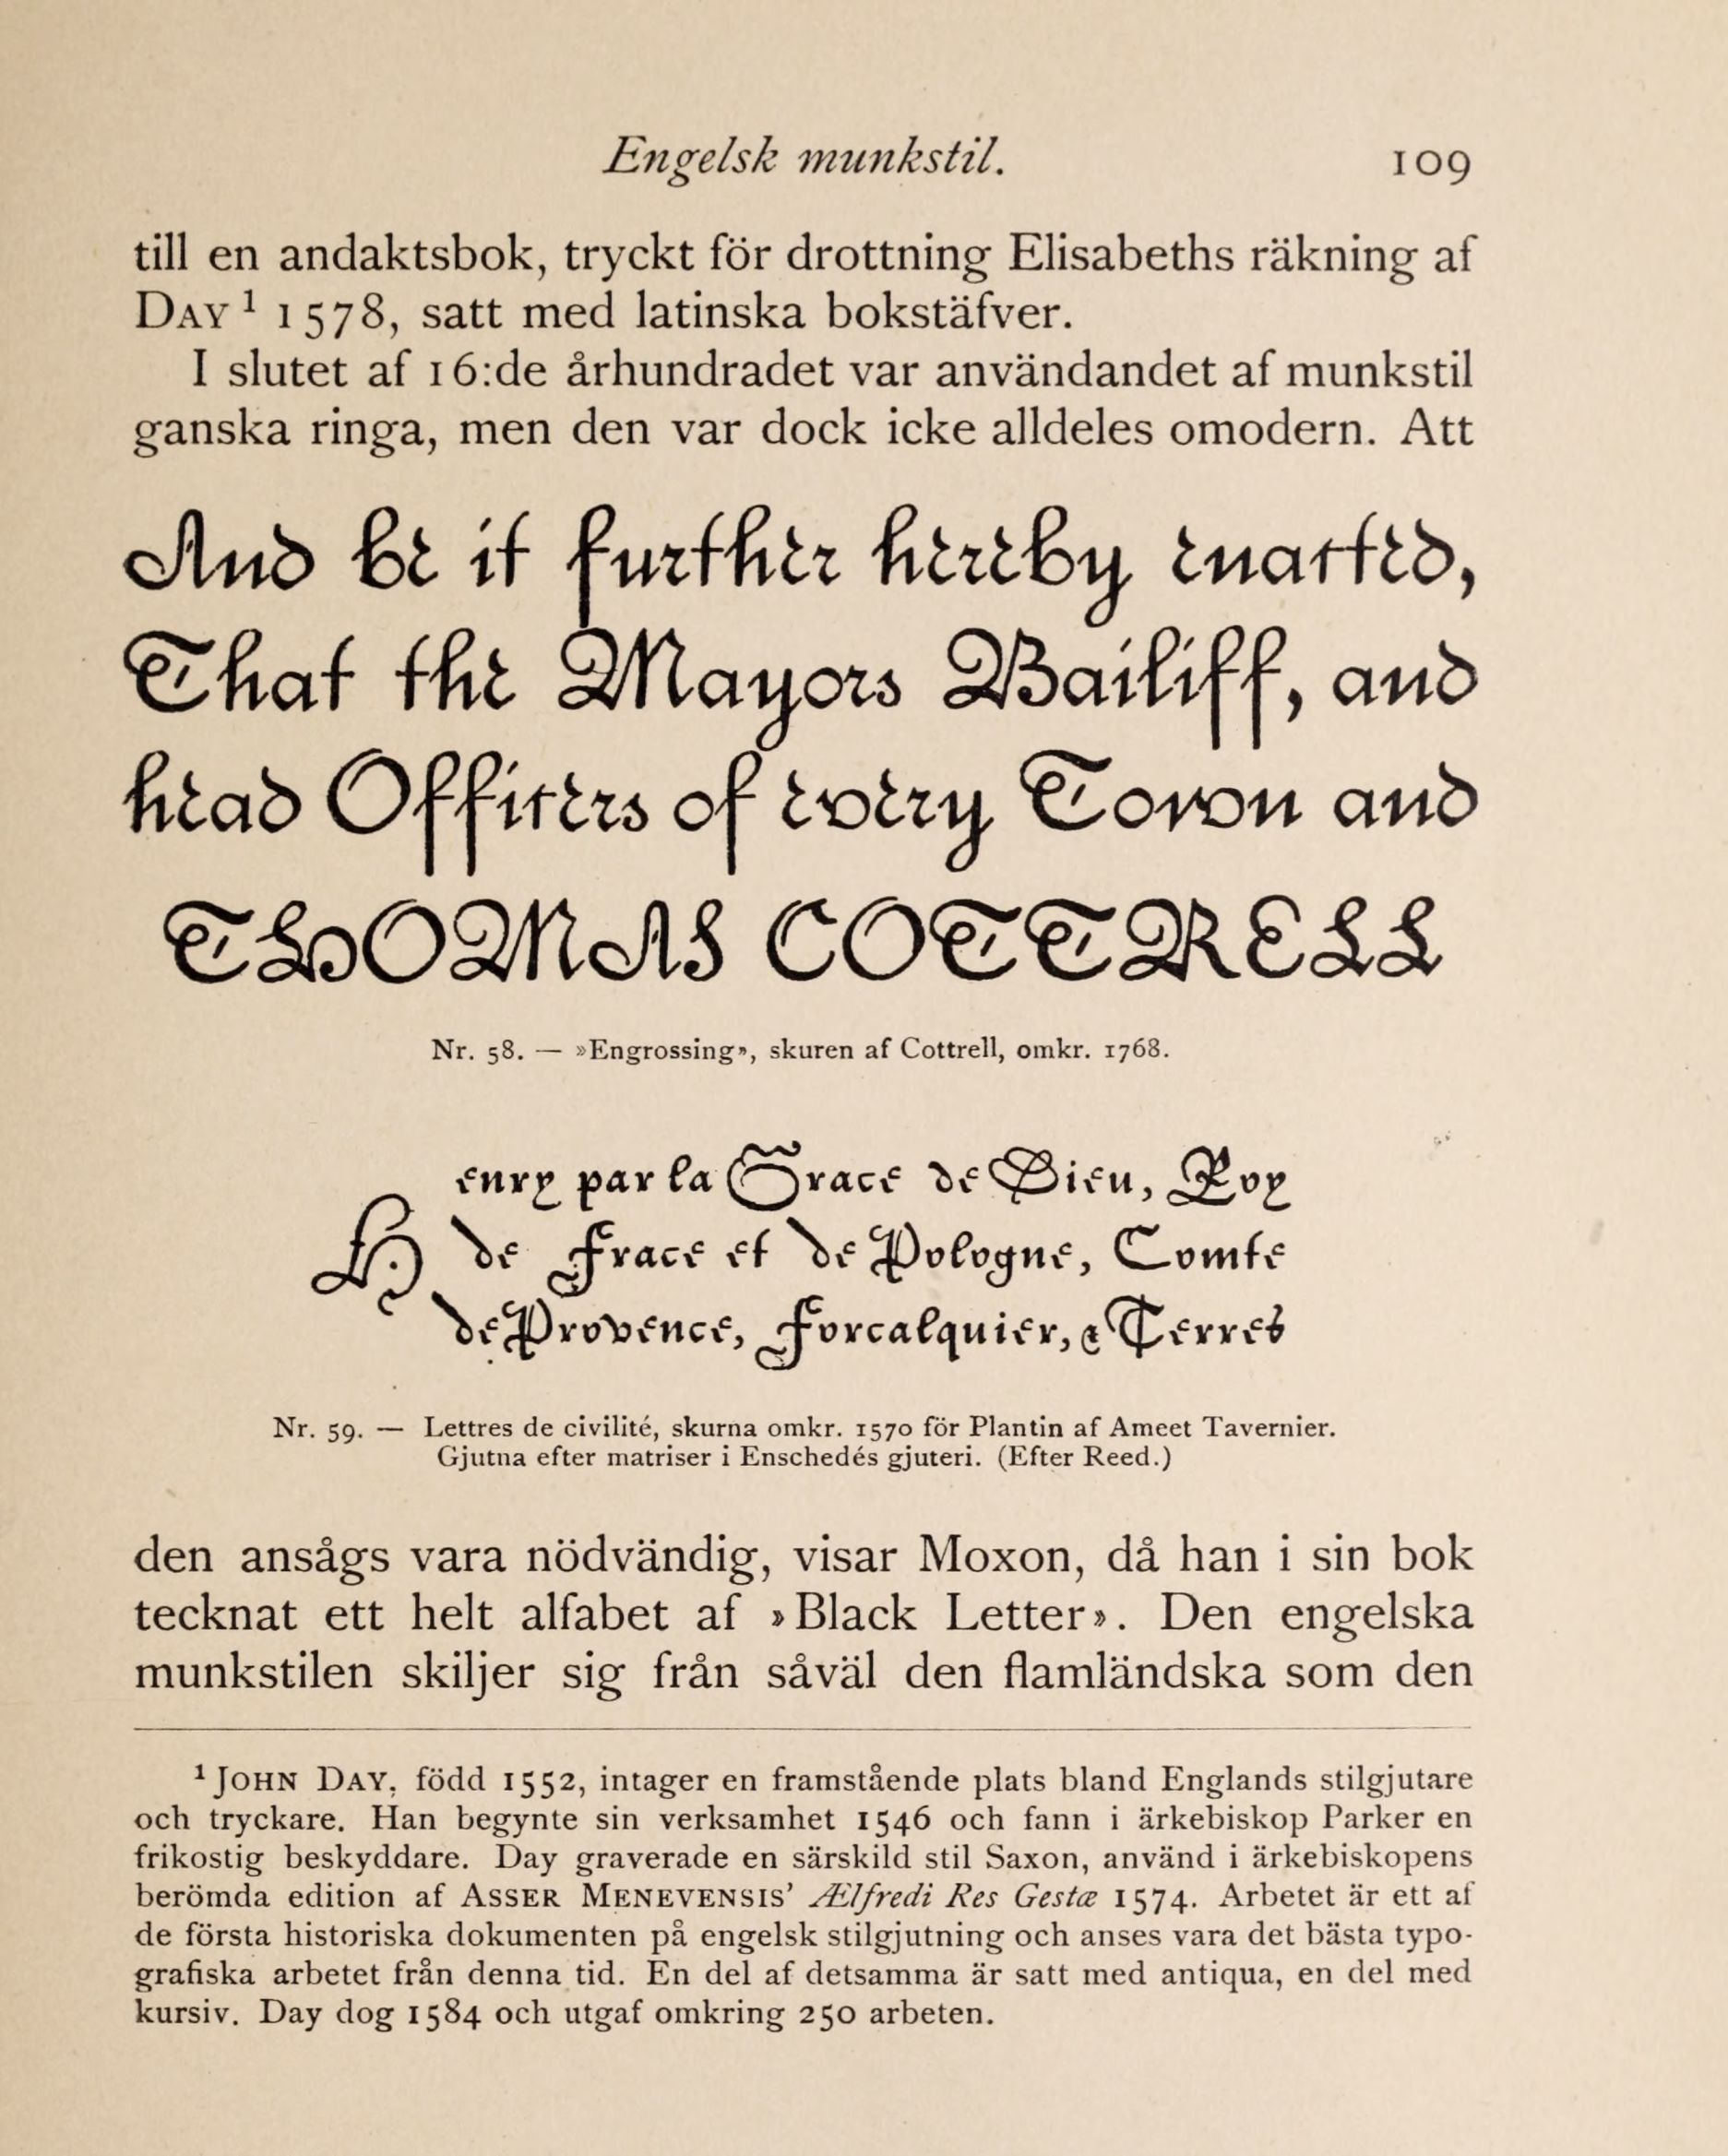 Engelsk munkstil. 109
till en andaktsbok, tryckt för drottning Elisabeths räkning af
DAY¹ 1578, satt med latinska bokstäfver.
I slutet af 16:de århundradet var användandet af munkstil
ganska ringa, men den var dock icke alldeles omodern. Att
And be it further hereby enacted,
That the Mayors Bailiff, and
head Officers of every Town and
THOMAS COTTRELL
Nr. 58. — »Engrossing», skuren af Cottrell, omkr. 1768.
Henry par la Grace de Dieu, Roy
de Frace et de Pologne, Comte
de Provence, Forcalquier, & Terres
Nr. 59. — Lettres de civilité, skurna omkr. 1570 för Plantin af Ameet Tavernier.
Gjutna efter matriser i Enschedés gjuteri. (Efter Reed.)
den ansågs vara nödvändig, visar Moxon, då han i sin bok
tecknat ett helt alfabet af »Black Letter». Den engelska
munkstilen skiljer sig från såväl den flamländska som den
¹ JOHN DAY, född 1552, intager en framstående plats bland Englands stilgjutare
och tryckare. Han begynte sin verksamhet 1546 och fann i ärkebiskop Parker en
frikostig beskyddare. Day graverade en särskild stil Saxon, använd i ärkebiskopens
berömda edition af ASSER MENEVENSIS' Ælfredi Res Gestæ 1574. Arbetet är ett af
de första historiska dokumenten på engelsk stilgjutning och anses vara det bästa typo-
grafiska arbetet från denna tid. En del af detsamma är satt med antiqua, en del med
kursiv. Day dog 1584 och utgaf omkring 250 arbeten.